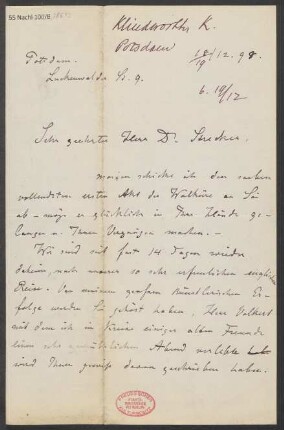 55 Nachl 100/B,
Klindworth, K.
Potsdam
18/12. 98
19
b. 19/12
Potsdam.
Luckenwalder Str. 9.
Sehr geehrter Herr Dr. Strecker.
morgen schicke ich den soeben
vollendeten ersten Akt der Walküre an Sie
ab – möge er glücklich in Ihre Hände ge-
langen u. Ihnen Vergnügen machen. –
Wir sind seit fast 14 Tagen wieder
daheim, nach unserer so sehr erfreulichen englischen
Reise. Von meinem großen künstlerischen Er-
folge werden Sie gehört haben. Herr Volkert
mit dem ich im Kreise einiger alten Freunde
einen sehr gemütlichen Abend verlebte
wird Ihnen gewiss davon geschrieben haben.